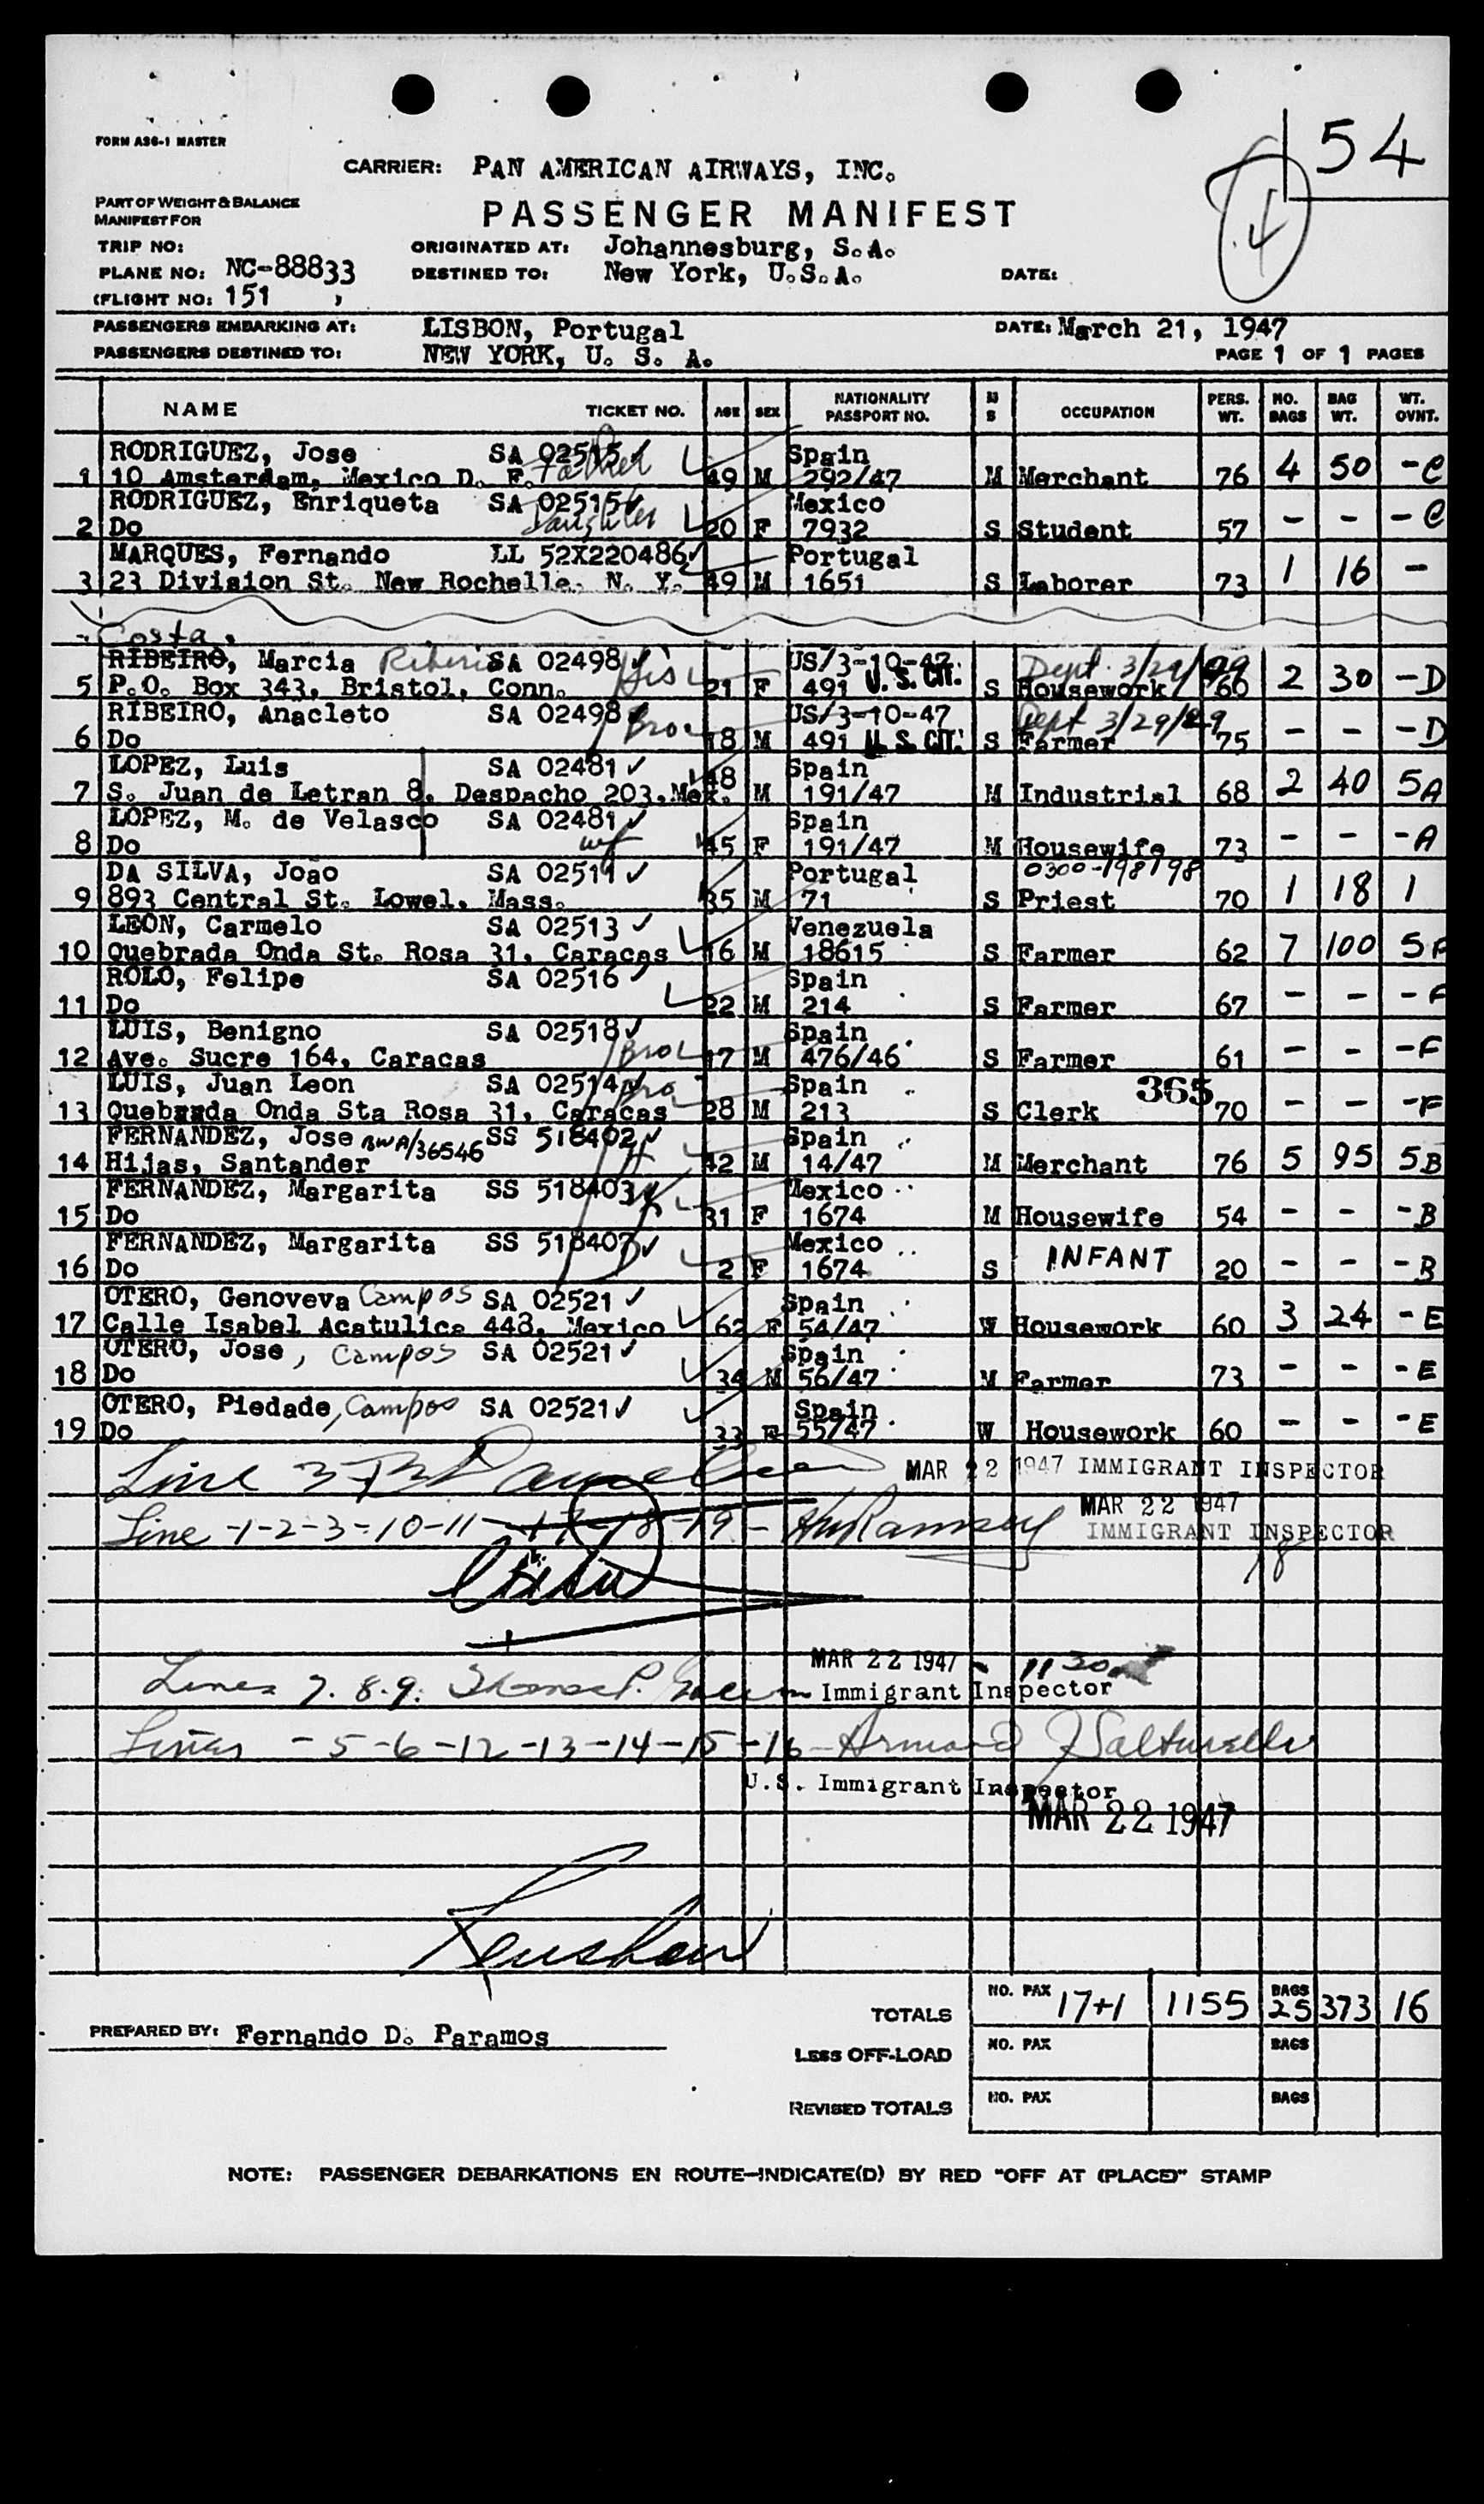 154
4
FORM A36-1 MASTER
CARRIER: PAN AMERICAN AIRWAYS, INC.
PART OF WEIGHT & BALANCE
MANIFEST FOR
PASSENGER MANIFEST
TRIP NO:
ORIGINATED AT: Johannesburg, S.A.
PLANE NO: NC-88833
DESTINED TO: New York, U.S.A. DATE:
(FLIGHT NO: 151 )
PASSENGERS EMBARKING AT: LISBON, Portugal DATE: March 21, 1947
PASSENGERS DESTINED TO: NEW YORK, U. S. A. PAGE 1 OF 1 PAGES
NAME TICKET NO. AGE SEX NATIONALITY PASSPORT NO. M S OCCUPATION PERS. WT. NO. BAGS BAG WT. WT. OVNT.
RODRIGUEZ, Jose SA 02515 ✓ Father Spain
1 10 Amsterdam, Mexico D. F. 49 M 292/47 M Merchant 76 4 50 -C
RODRIGUEZ, Enriqueta SA 02515 ✓ Daughter Mexico
2 Do 20 F 7932 S Student 57 - - -C
MARQUES, Fernando LL 52X220486 ✓ Portugal
3 23 Division St. New Rochelle. N. Y. 49 M 1651 S Laborer 73 1 16 -
Costa,
RIBEIRO, Marcia SA 02498 ✓ Sis US/3-10-47 Dept. 3/29/49
5 P.O. Box 343, Bristol, Conn. 21 F 491 U.S. CIT. S Housework 60 2 30 -D
RIBEIRO, Anacleto SA 02498 Bro US/3-10-47 Dept 3/29/49
6 Do 18 M 491 U.S. CIT. S Farmer 75 - - -D
LOPEZ, Luis SA 02481 ✓ 48 Spain
7 S. Juan de Letran 8, Despacho 203.Mex. M 191/47 M Industrial 68 2 40 5A
LOPEZ, M. de Velasco SA 02481 ✓ wf Spain
8 Do 45 F 191/47 M Housewife 73 - - -A
DA SILVA, João SA 02511 ✓ Portugal 0300-198198
9 893 Central St. Lowel, Mass. 35 M 71 S Priest 70 1 18 1
LEON, Carmelo SA 02513 ✓ Venezuela
10 Quebrada Onda St. Rosa 31, Caracas 16 M 18615 S Farmer 62 7 100 5F
ROLO, Felipe SA 02516 ✓ Spain
11 Do 22 M 214 S Farmer 67 - - -F
LUIS, Benigno SA 02518 ✓ Bro Spain
12 Ave. Sucre 164, Caracas 17 M 476/46 S Farmer 61 - - -F
LUIS, Juan Leon SA 02514 Bro Spain 365
13 Quebrada Onda Sta Rosa 31, Caracas 28 M 213 S Clerk 70 - - -F
FERNANDEZ, Jose BWA/36546 SS 518402 ✓ H Spain
14 Hijas, Santander 42 M 14/47 M Merchant 76 5 95 5B
FERNANDEZ, Margarita SS 518403 Mexico
15 Do 31 F 1674 M Housewife 54 - - -B
FERNANDEZ, Margarita SS 518407 ✓ D Mexico
16 Do 2 F 1674 S INFANT 20 - - -B
OTERO, Genoveva Campos SA 02521 ✓ Spain
17 Calle Isabel Acatulica 448, Mexico 62 F 54/47 W Housework 60 3 24 -E
OTERO, Jose, Campos SA 02521 ✓ Spain
18 Do 34 M 56/47 M Farmer 73 - - -E
OTERO, Piedade, Campos SA 02521 ✓ Spain
19 Do 33 F 55/47 W Housework 60 - - -E
Line 3 MAR 22 1947 IMMIGRANT INSPECTOR
MAR 22 1947
Line -1-2-3-10-11-17-18-19- Ramsey IMMIGRANT INSPECTOR
18
MAR 22 1947 - 1130
Lines 7. 8. 9. Immigrant Inspector
Lines -5-6-12-13-14-15-16- Armand
U.S. Immigrant Inspector
MAR 22 1947
Renshaw
TOTALS NO. PAX 17+1 1155 BAGS 25 373 16
PREPARED BY: Fernando D. Paramos
LESS OFF-LOAD NO. PAX BAGS
REVISED TOTALS NO. PAX BAGS
NOTE: PASSENGER DEBARKATIONS EN ROUTE—INDICATE(D) BY RED "OFF AT (PLACE)" STAMP